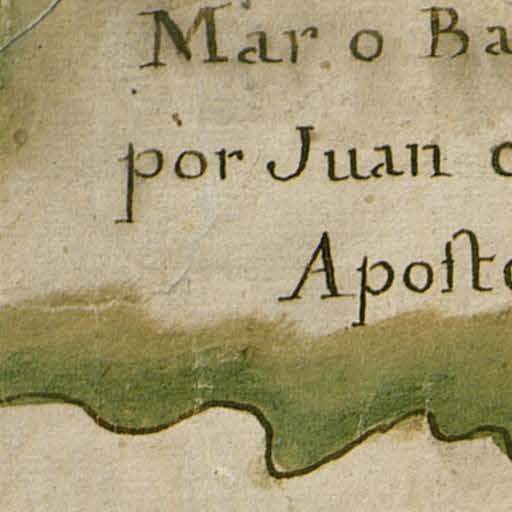 Mar o Ba
por Juan
Aposto